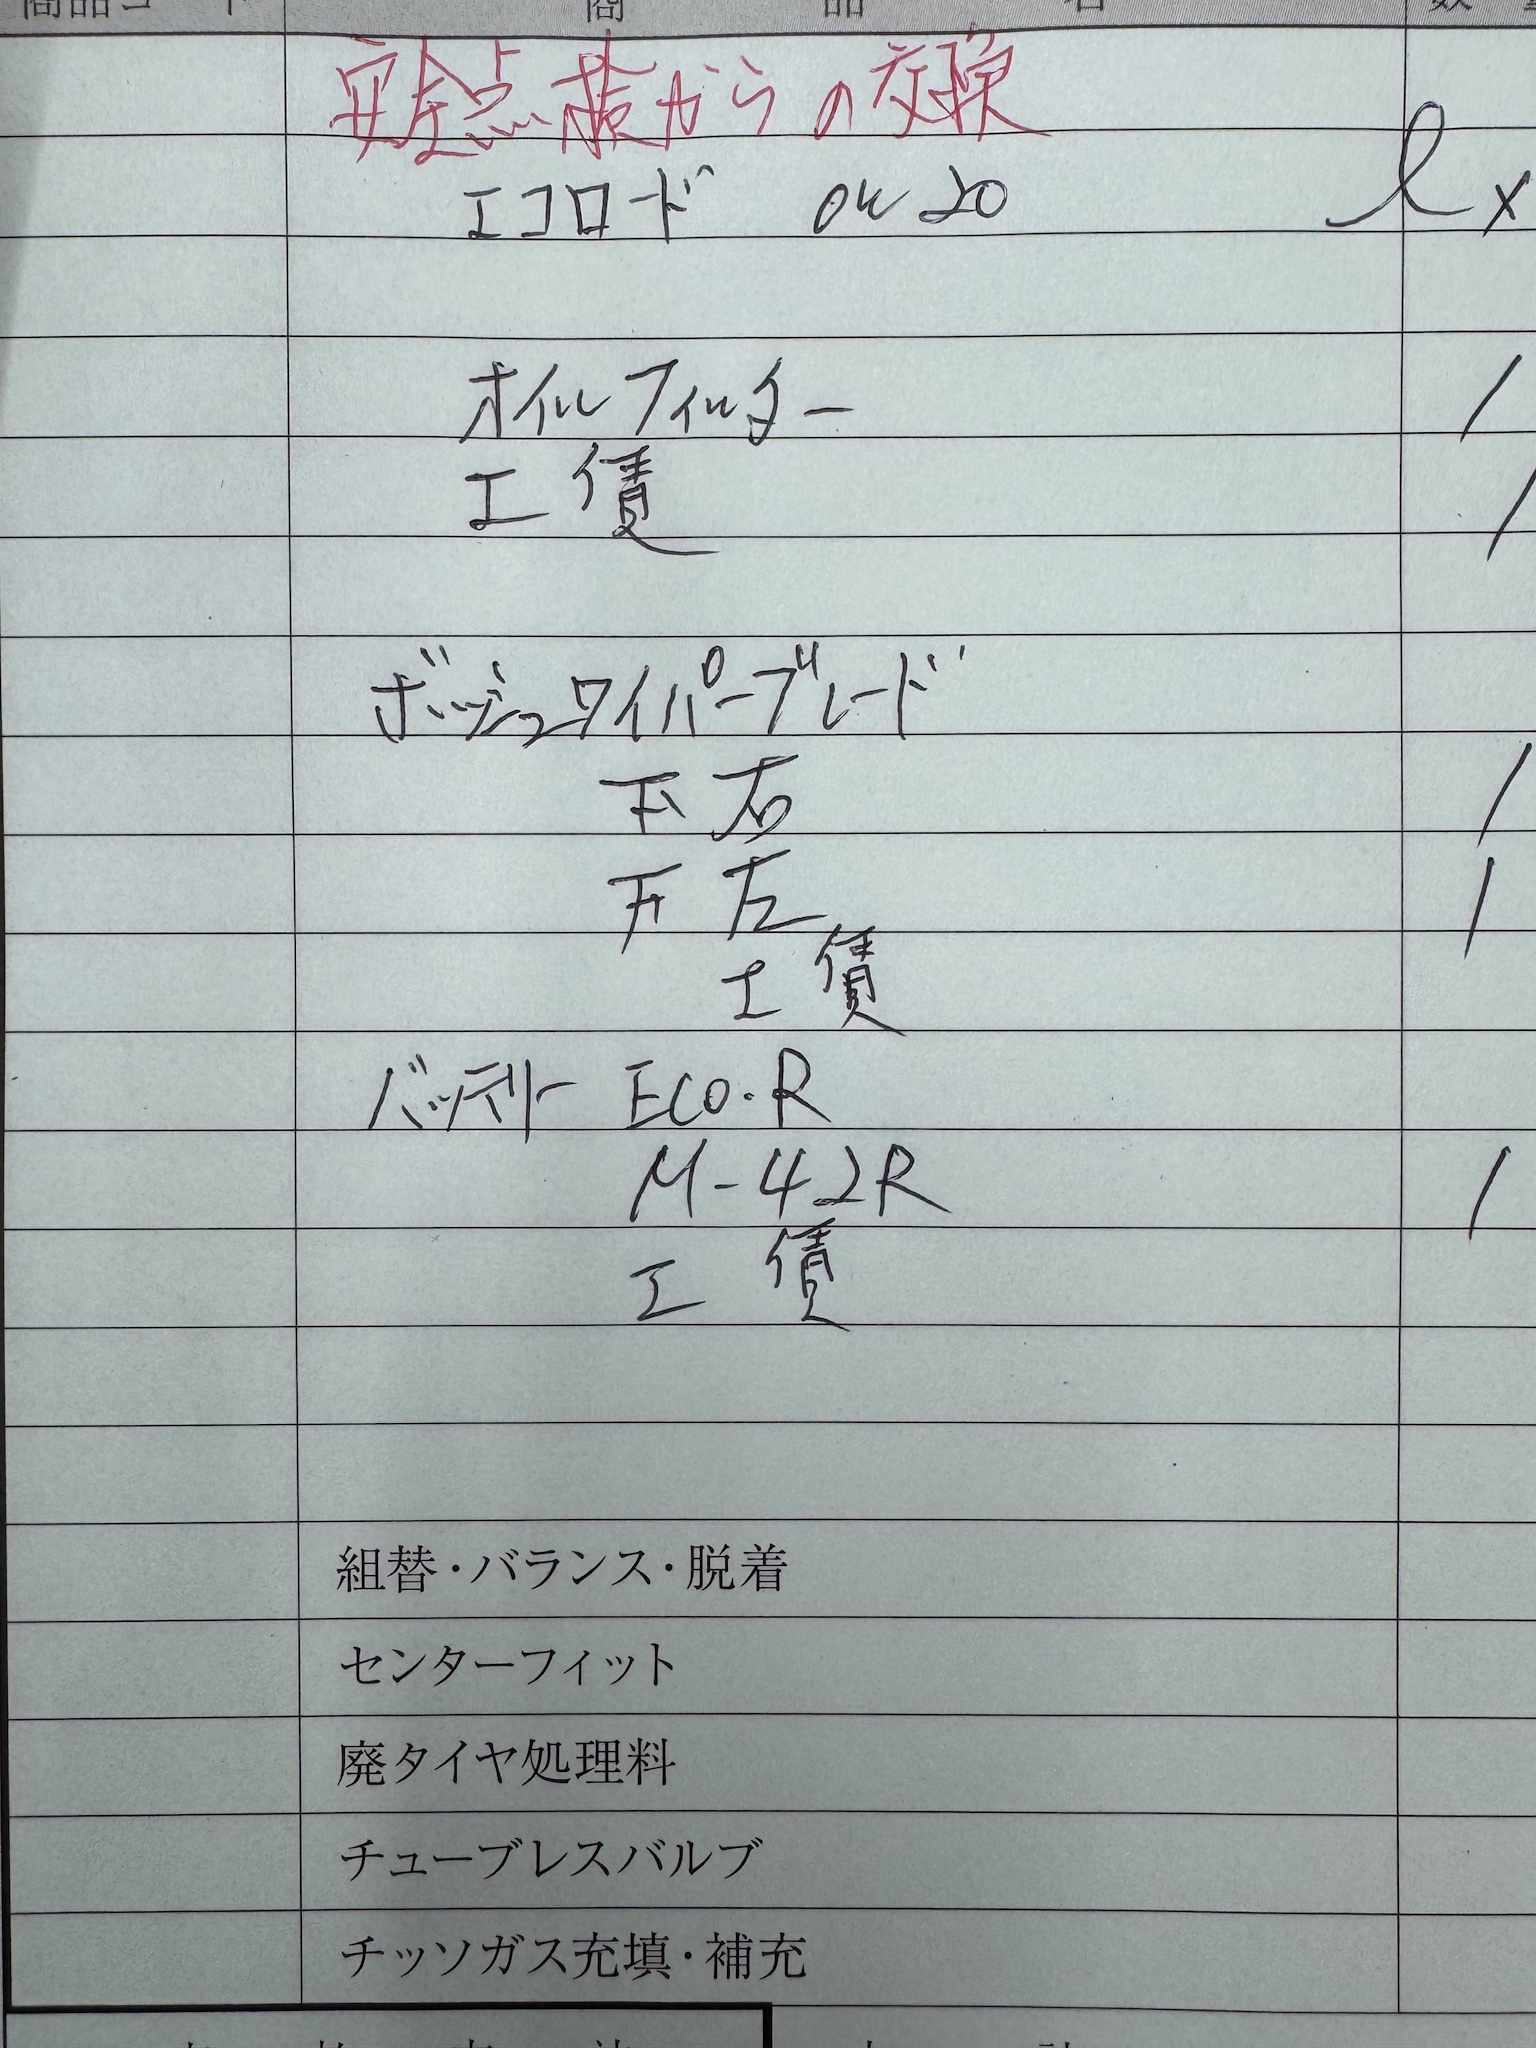 商品コード 商品名
安全点検からの交換
エコロード 0W20 l x
オイルフィルター 1
工賃 1
ボッシュワイパーブレード
下右 1
下左 1
工賃
バッテリー ECO.R
M-42R 1
工賃
組替・バランス・脱着
センターフィット
廃タイヤ処理料
チューブレスバルブ
チッソガス充填・補充